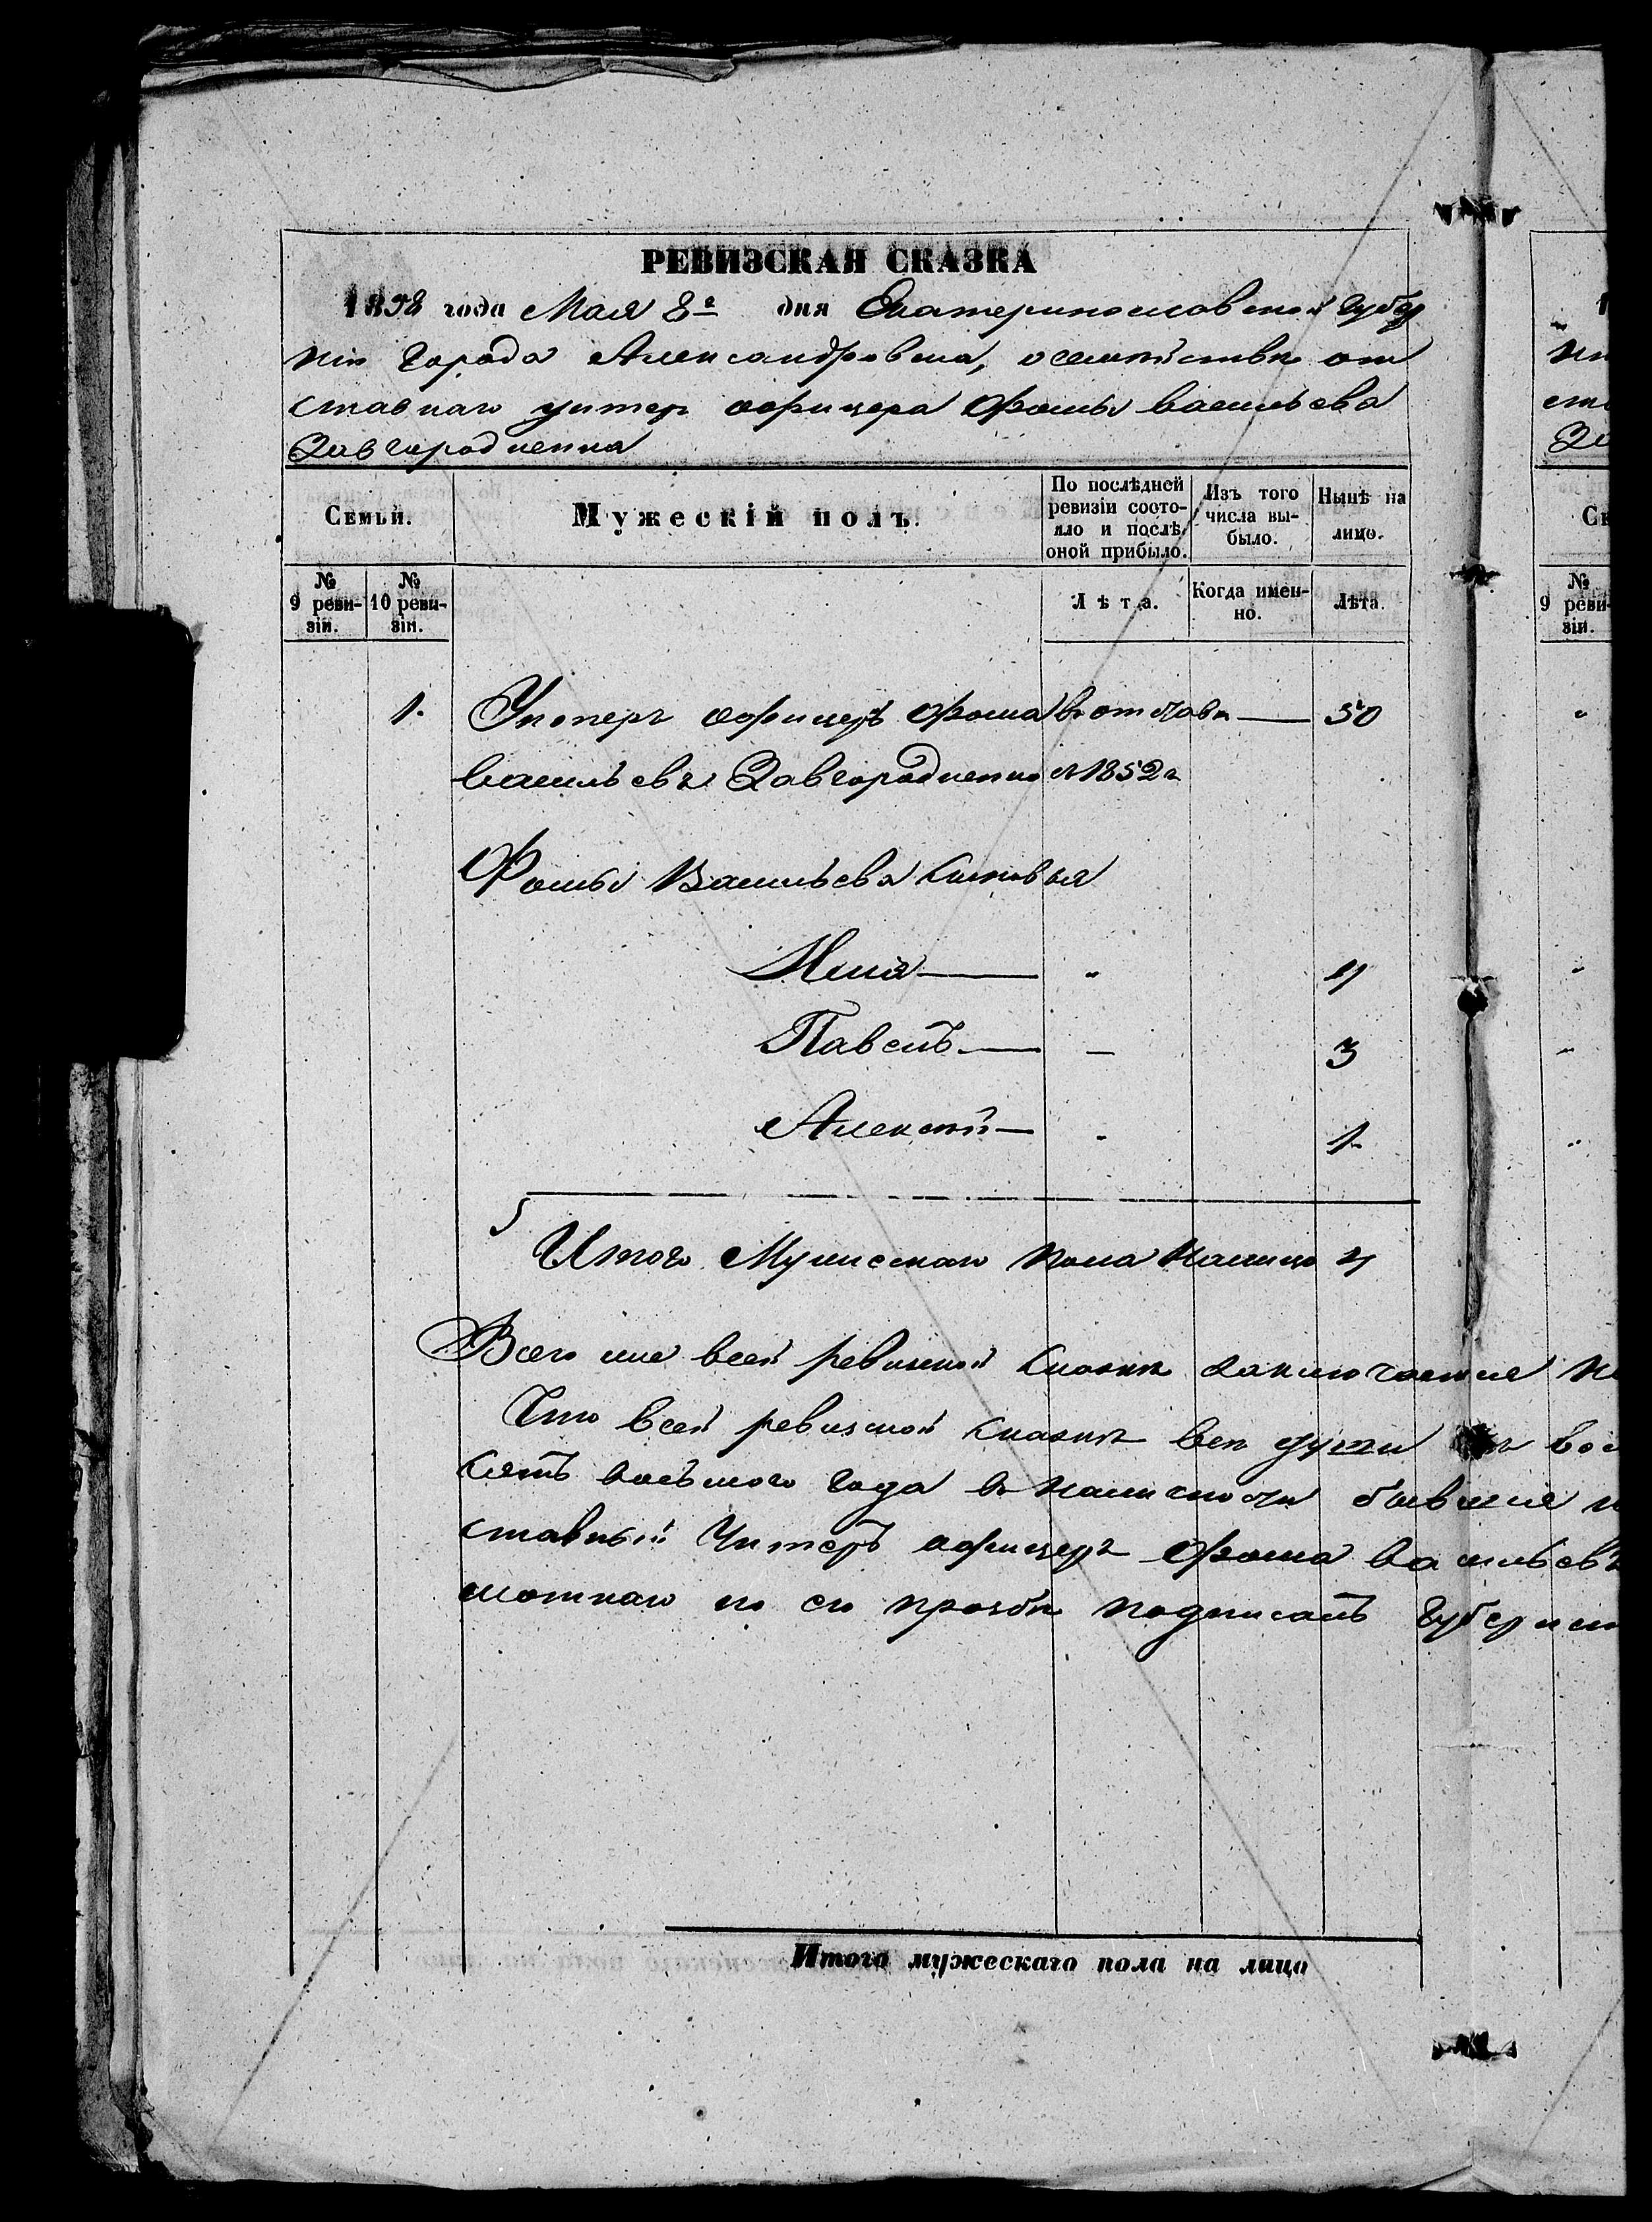 РЕВИЗСКАЯ СКАЗКА
1858 года Мая 8го дня Екатеринославской губер
ніи города Александровска, о семѣйствѣ от
ставнаго унтер оофицера Фомы Васильева
Завгородненка
Семьи.
Мужескій полъ.
По послѣдней ревизіи состо-
яло и послѣ оной прибыло.
Изъ того числа вы-
было.
Нынѣ на лицо.
№ 9 реви-
зіи.
№ 10 реви-
зіи.
Лѣта.
Когда имен-
но.
Лѣта.
1. Унтеръ оофицеръ Фома въ отставкѣ 50
Васильевъ Завгородненко с 1852 г
Фомы Васильева сыновья
Илья " 4
Павелъ — 3
Алексѣй - 1
Итого Мужескаго пола налицо 4
Всего же всей ревизской сказкѣ заключается
Что всей ревизской сказкѣ всѣ души
сятъ восьмого года въ наличности бывшие
ставный Унтеръ офицеръ Фома Васильевъ
мотнаго по его прозбѣ подписалъ
Итого мужескаго пола на лицо
1
ни
ста
За
№
9 реви-
зіи.